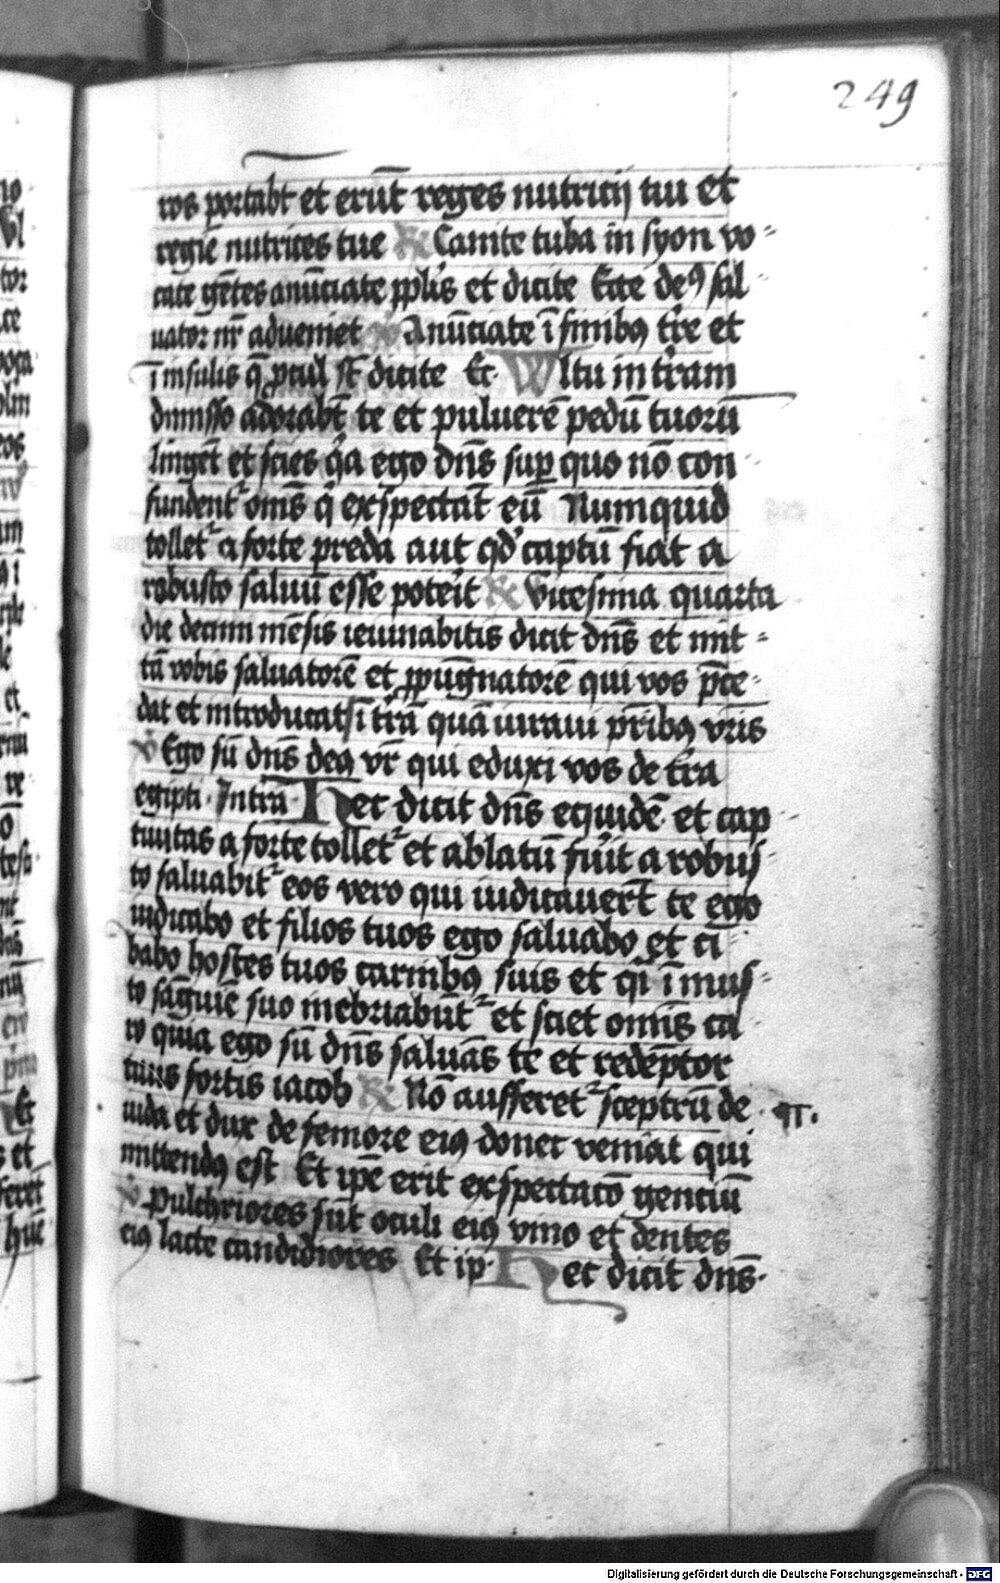 249
ros portabt et erūt reges nutricij tui et
regie nutrices tue ℟ Canite tuba in syon vo-
cate gētes anūciate pplis et dicite Ecce deꝰ sal
uator nr̄ adueniet ℣ Anūciate ī finibꝫ tre et
ī insulis q̄ pcul st̄ dicite Ec. Wltu in trām
dimisso adorabt̄ te et puluerē pedū tuorū
linget et scies qa ego dn̄s sup quo nō con
fundent omēs q exspectāt eū Numquid
tollet a forte preda aut qd captū fiat a
robusto saluū esse poterit ℟ Vicesima quarta
die decimi mēsis ieiunabitis dicit dn̄s et mit-
tā vobis saluatorē et ppugnatorē qui vos p̄ce-
dat et introducat ī trā quā iuraui pribꝫ vr̄is
℣ Ego sū dn̄s deꝰ vr̄ qui eduxi vos de tra
egipti. Intrā Hec dicit dn̄s equidē et cap
tiuitas a forte tollet et ablatū fuit a robus
to saluabit eos vero qui iudicauert̄ te ego
iudicabo et filios tuos ego saluabo et ci
babo hostes tuos carnibꝫ suis et q ī mus
to sāguīe suo inebriabūt et sciet omīs ca
ro quia ego sū dn̄s saluās te et redēptor
tuus fortis iacob ℟ Nō aufferet sceptrū de
iuda et dux de femore eiꝰ donec veniat qui
mittendꝰ est Et ipē erit exspectatō gentiū
℣ Pulchriores sūt oculi eiꝰ vino et dentes
eiꝰ lacte candidiores Et ip. Hec dicit dn̄s.
Digitalisierung gefördert durch die Deutsche Forschungsgemeinschaft - DFG